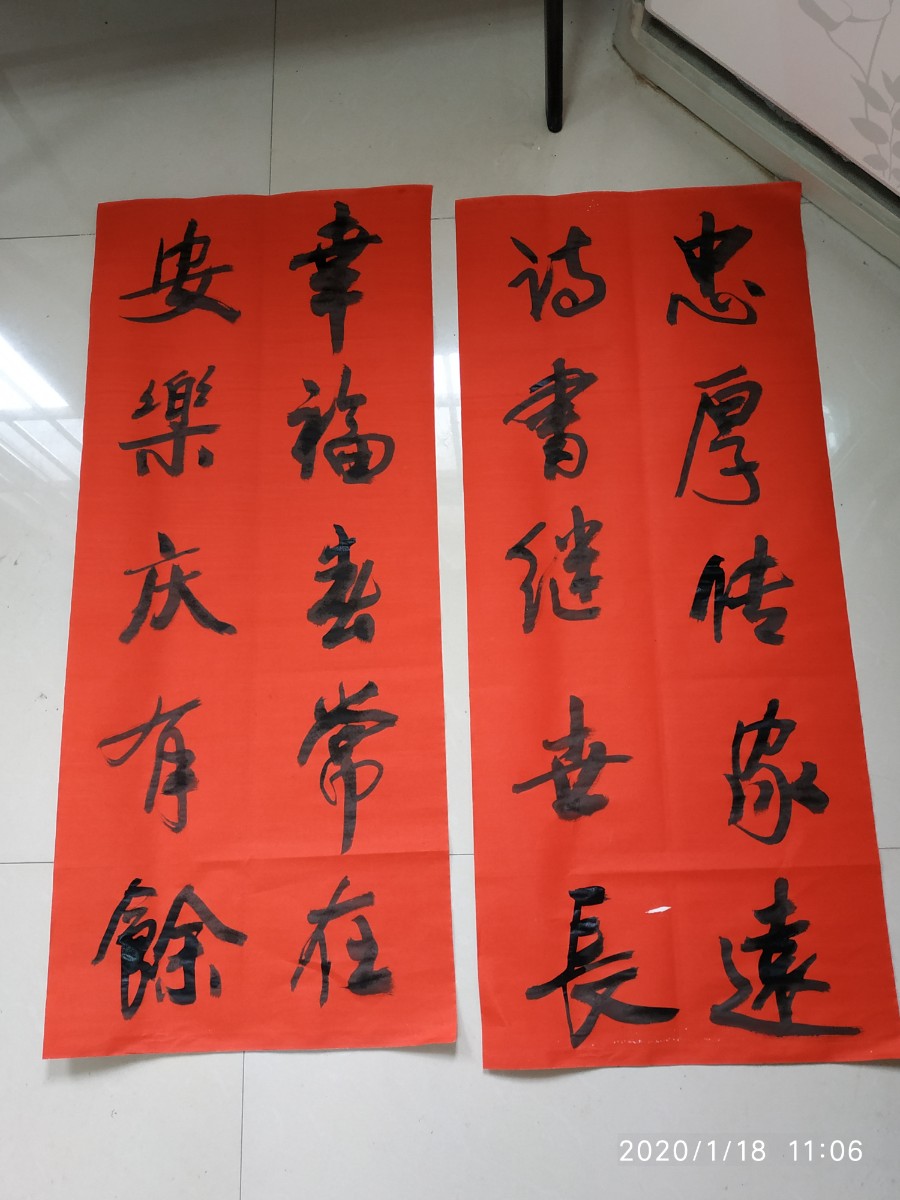 忠厚传家遠
詩書继世長
幸福春常在
安樂庆有餘
2020/1/18 11:06